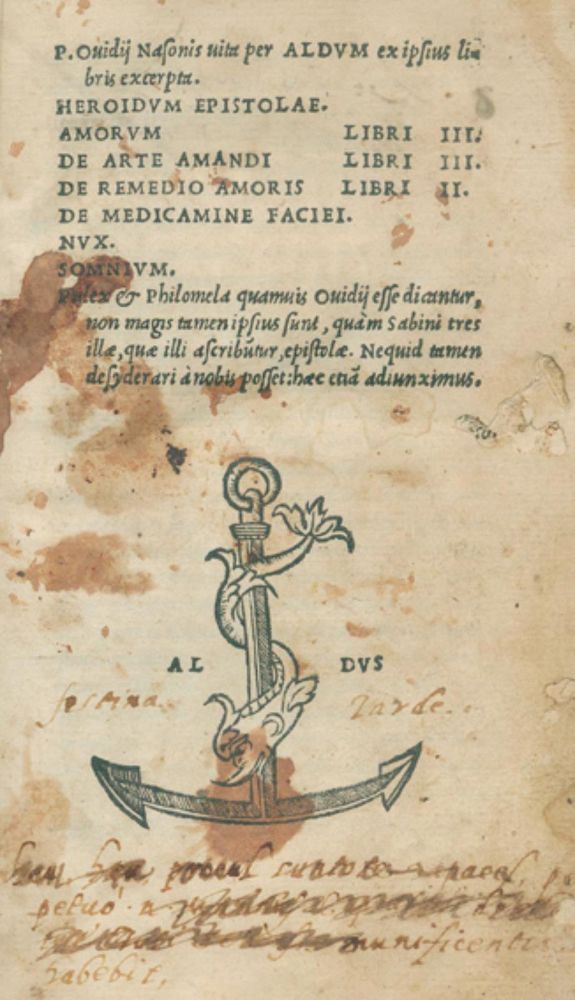 P. Ouidij Nasonis uita per ALDVM ex ipsius li-
bris excerpta.
HEROIDVM EPISTOLAE.
AMORVM LIBRI III.
DE ARTE AMANDI LIBRI III.
DE REMEDIO AMORIS LIBRI II.
DE MEDICAMINE FACIEI.
NVX.
SOMNIVM.
Pulex & Philomela quamuis Ouidij esse dicantur,
non magis tamen ipsius sunt, quàm Sabini tres
illæ, quæ illi ascribũtur, epistolæ. Nequid tamen
desyderari à nobis posset: hæc etiã adiunximus.
AL DVS
festina tarde.
procul
petuo
munificenti
habebit,